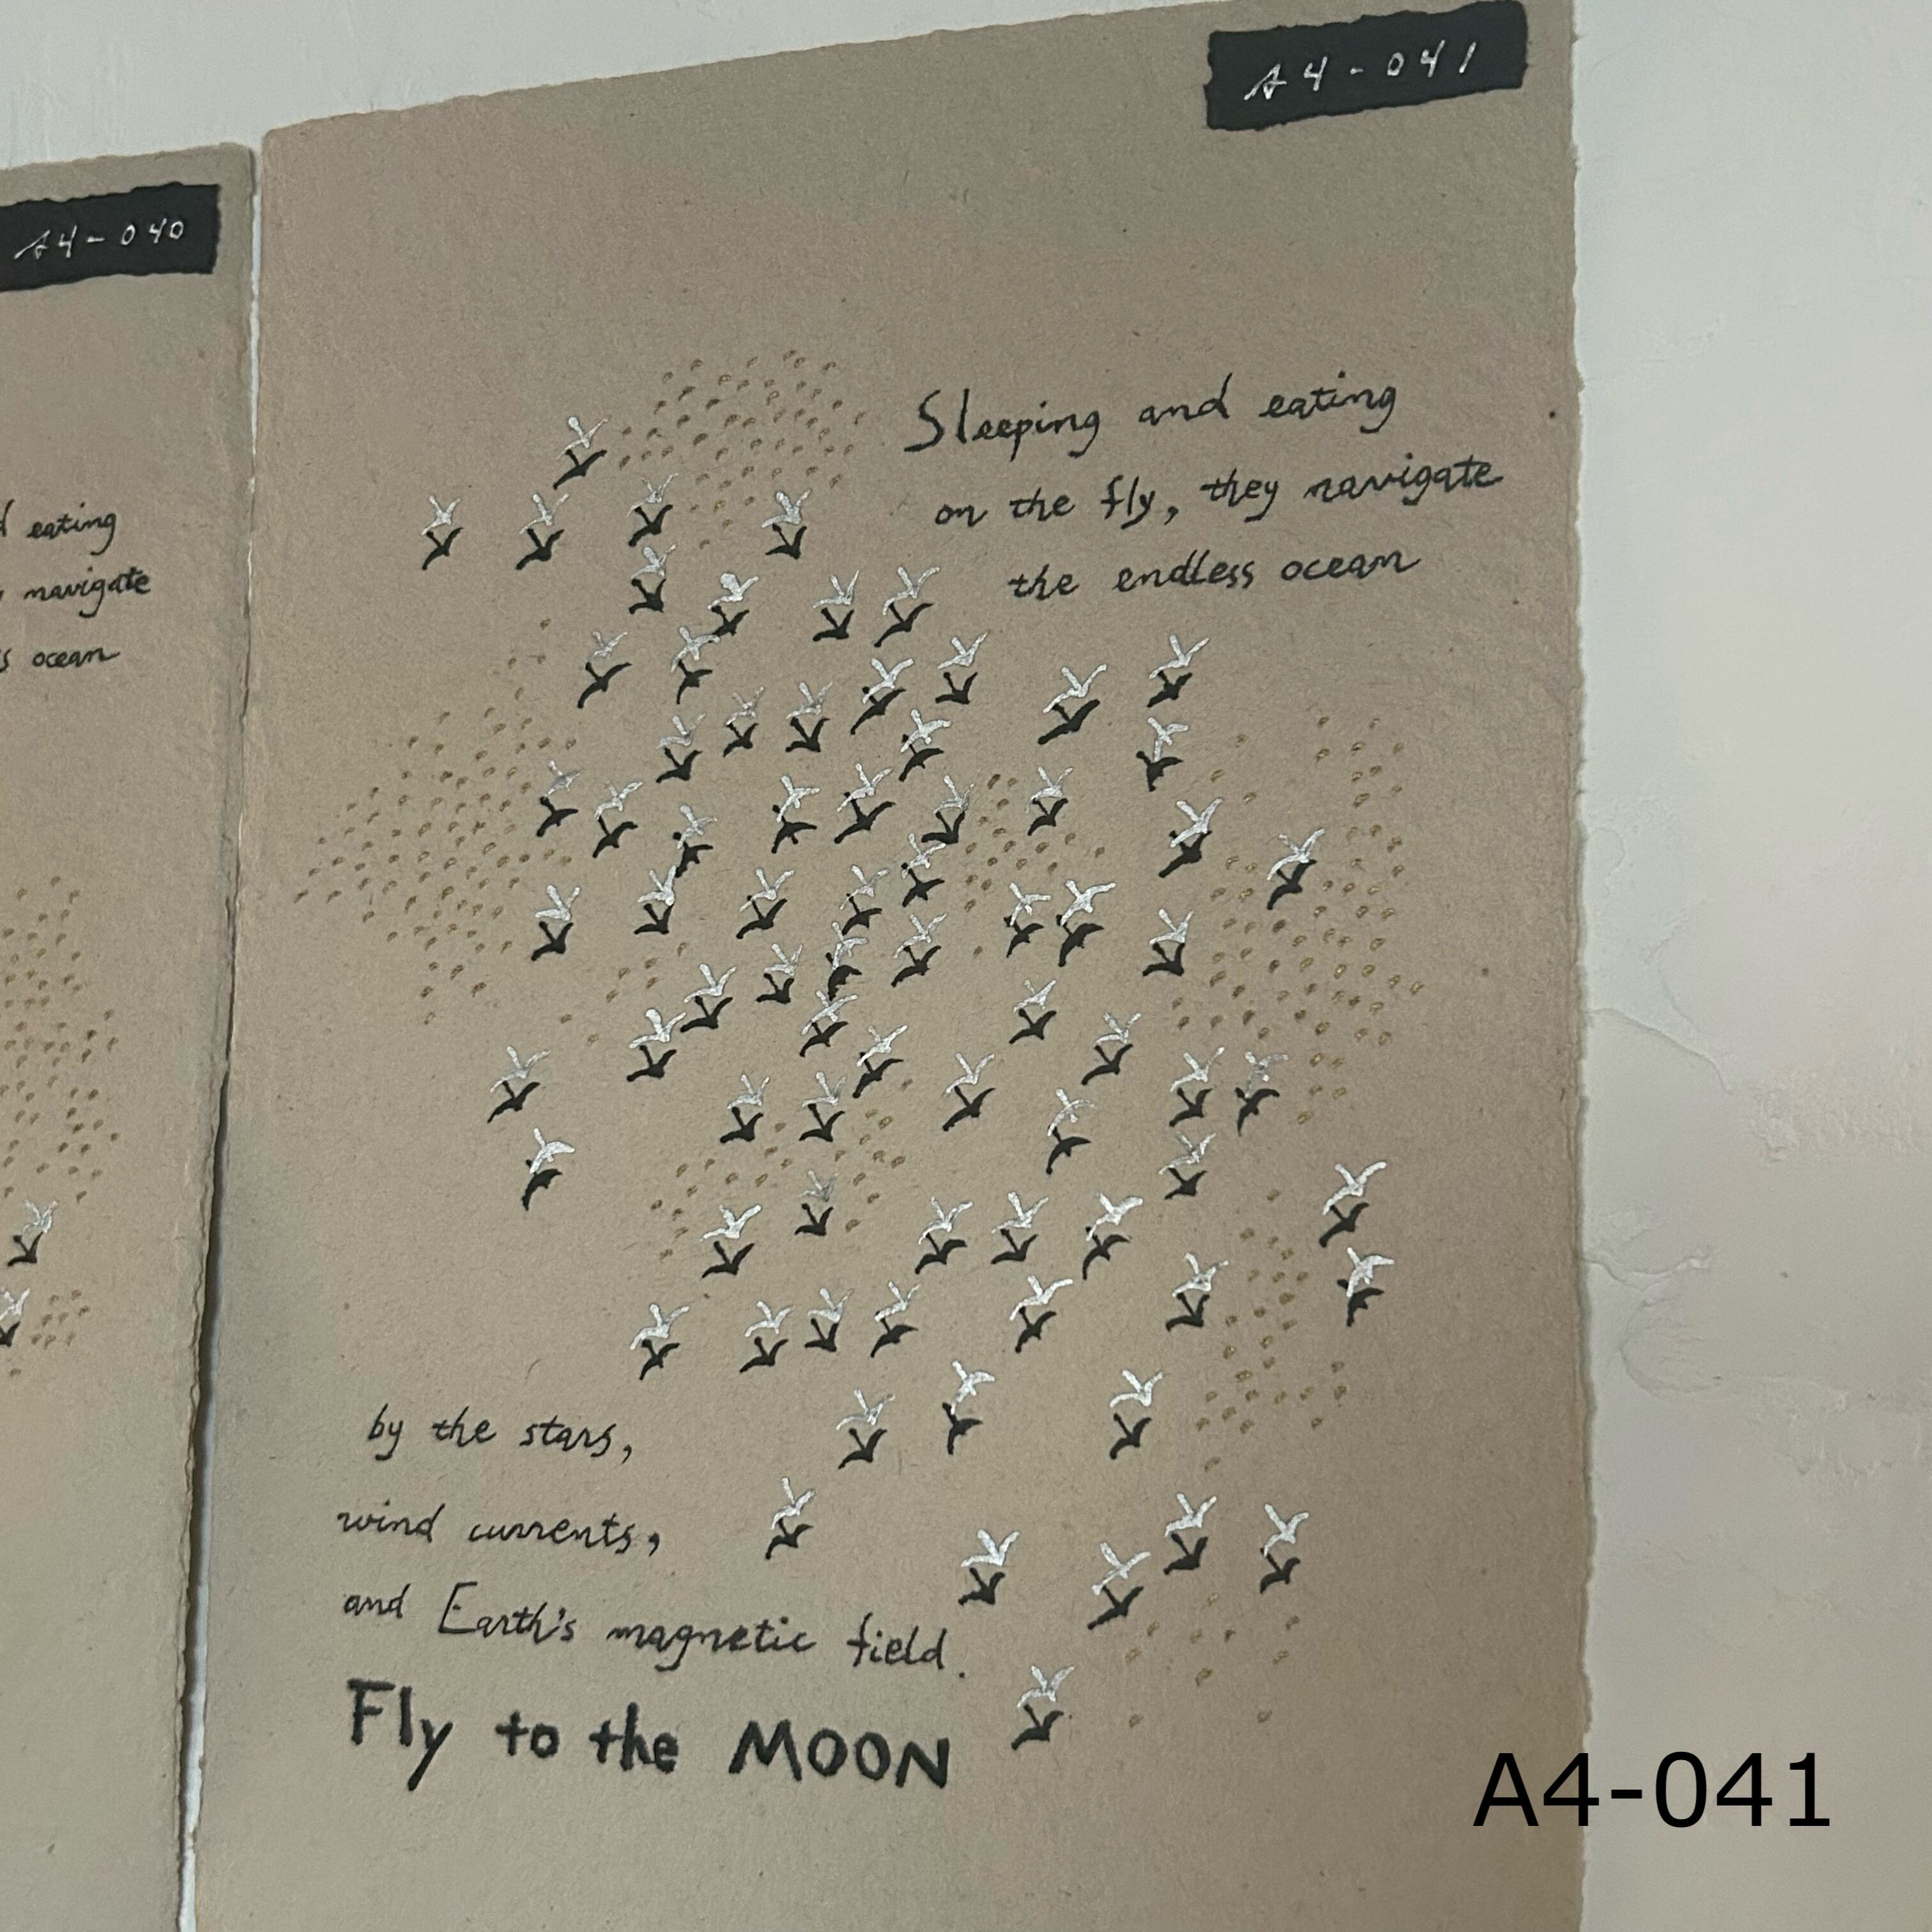 A4-040
eating
navigate
ocean
A4-041
Sleeping and eating
on the fly, they navigate
the endless ocean
by the stars,
wind currents,
and Earth's magnetic field.
Fly to the MOON
A4-041